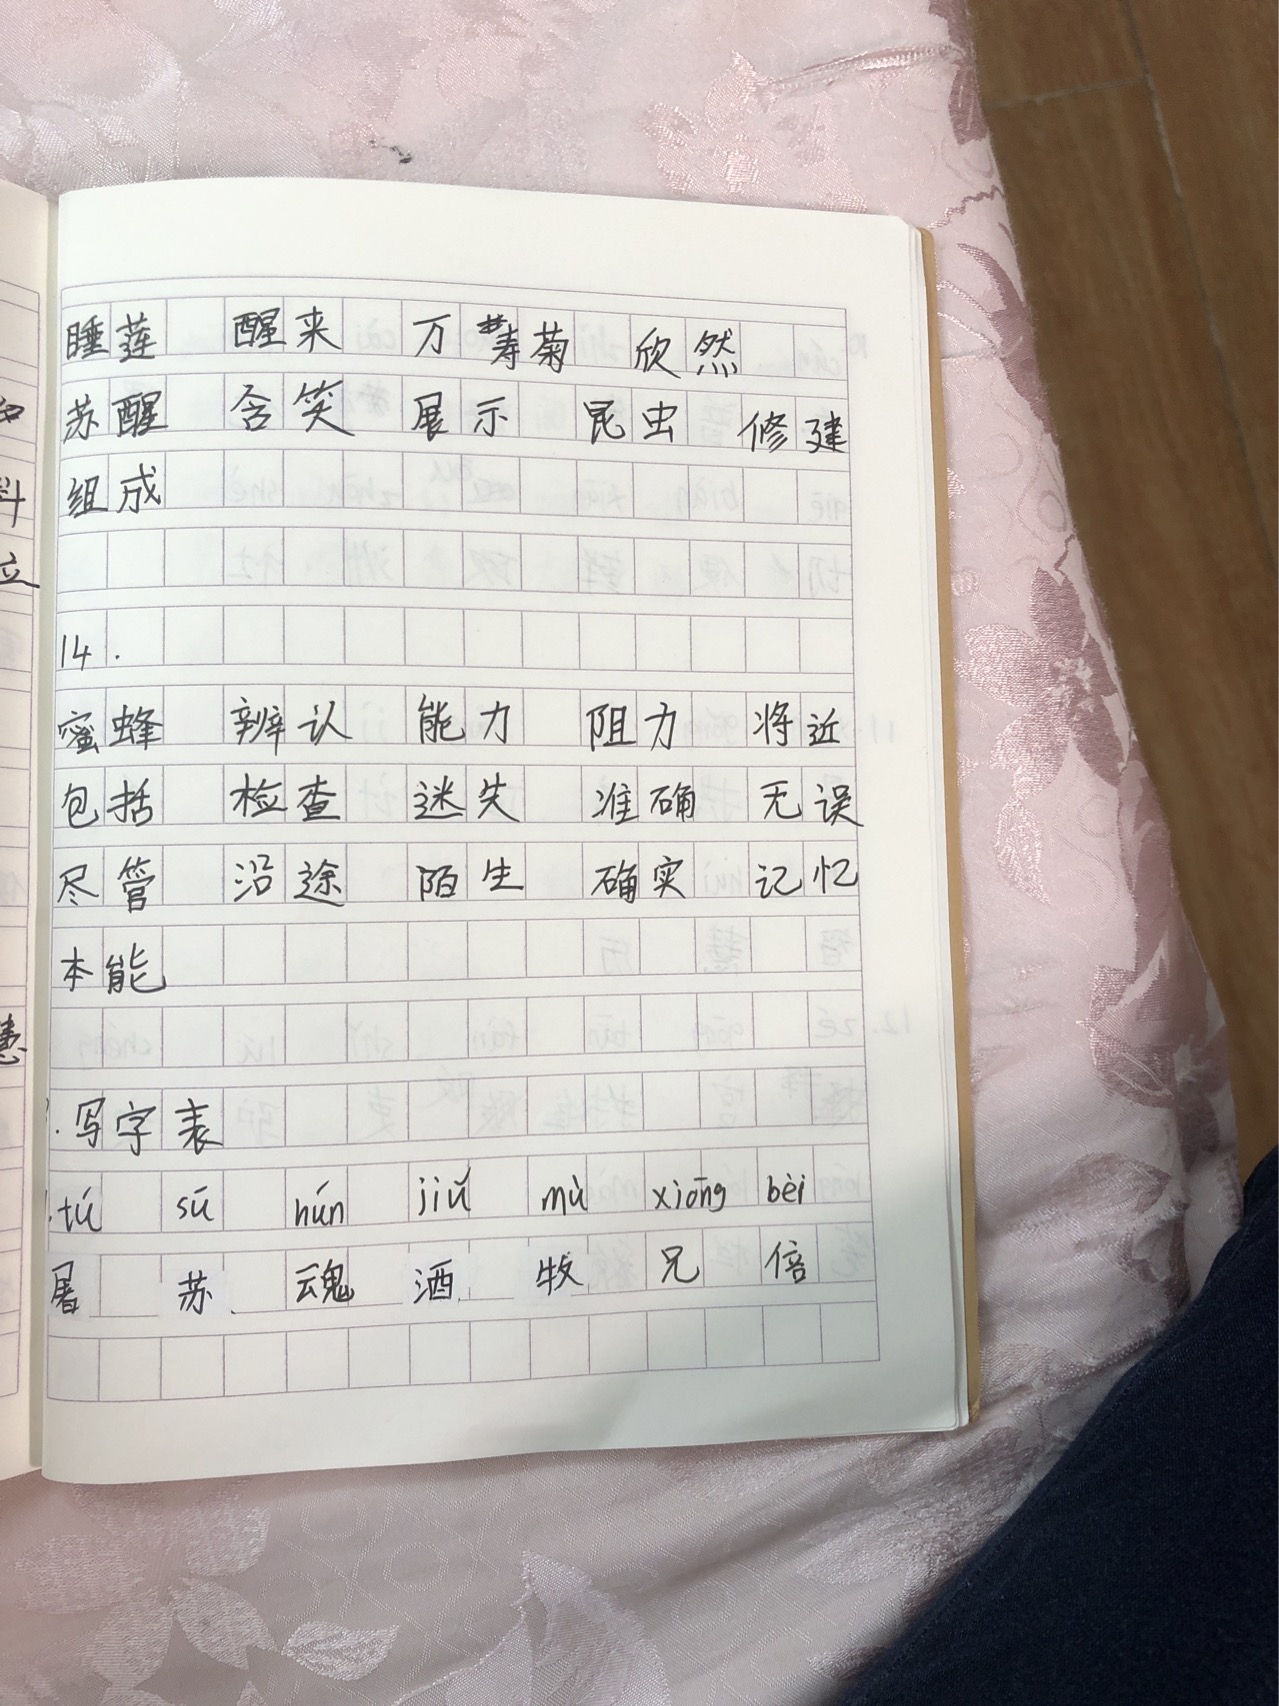 睡莲 醒来 万寿菊 欣然
苏醒 含笑 展示 昆虫 修建
组成
14.
蜜蜂 辨认 能力 阻力 将近
包括 检查 迷失 准确 无误
尽管 沿途 陌生 确实 记忆
本能
.写字表
.tú sū hún jiǔ mù xiōng bèi
屠 苏 魂 酒 牧 兄 倍